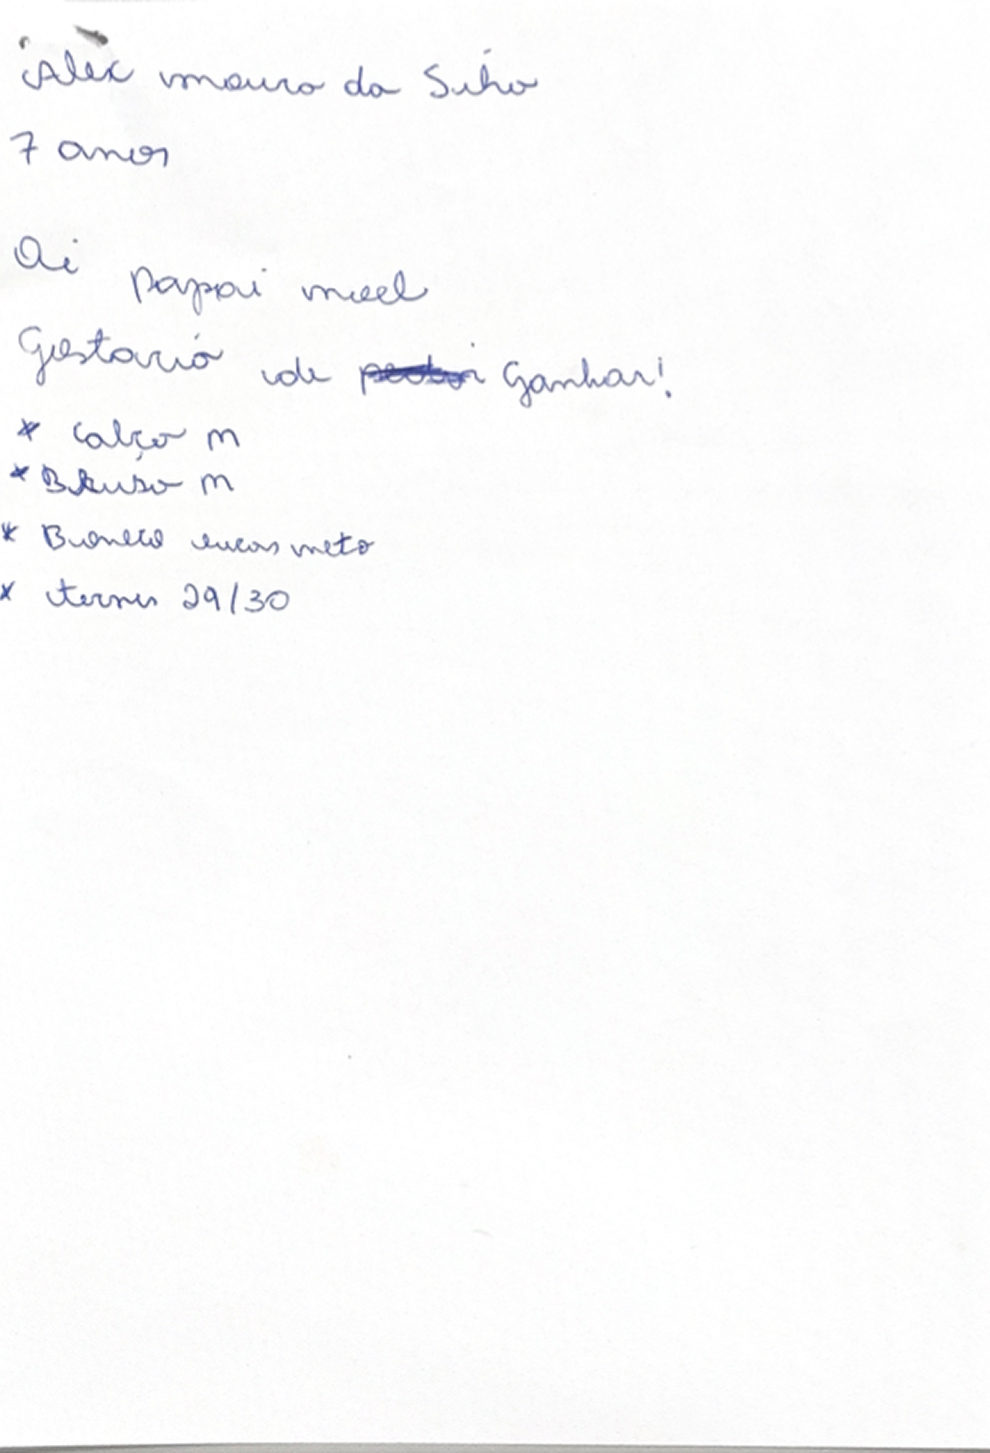 Alex mauro da Silva
7 anos
Oi papai noel
Gostaria de ganhar!
* Calça M
* Blusa M
* Boneco lucas neto
* tenis 29/30